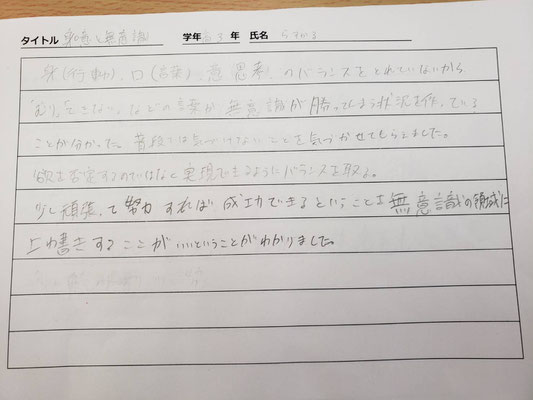 タイトル 無意識 学年 高3 年 氏名
身(行動)、口(言葉)、意(思考)のバランスをとれていないから
「むり」「できない」などの言葉が無意識が勝ってしまう状況を作っている
ことがわかった。普段では気づけないことを気づかせてもらえました。
欲を否定するのではなく実現できるようにバランスを取る。
少し頑張って努力すれば成功できるということを無意識の領域に
上書きするここがいいということがわかりました。